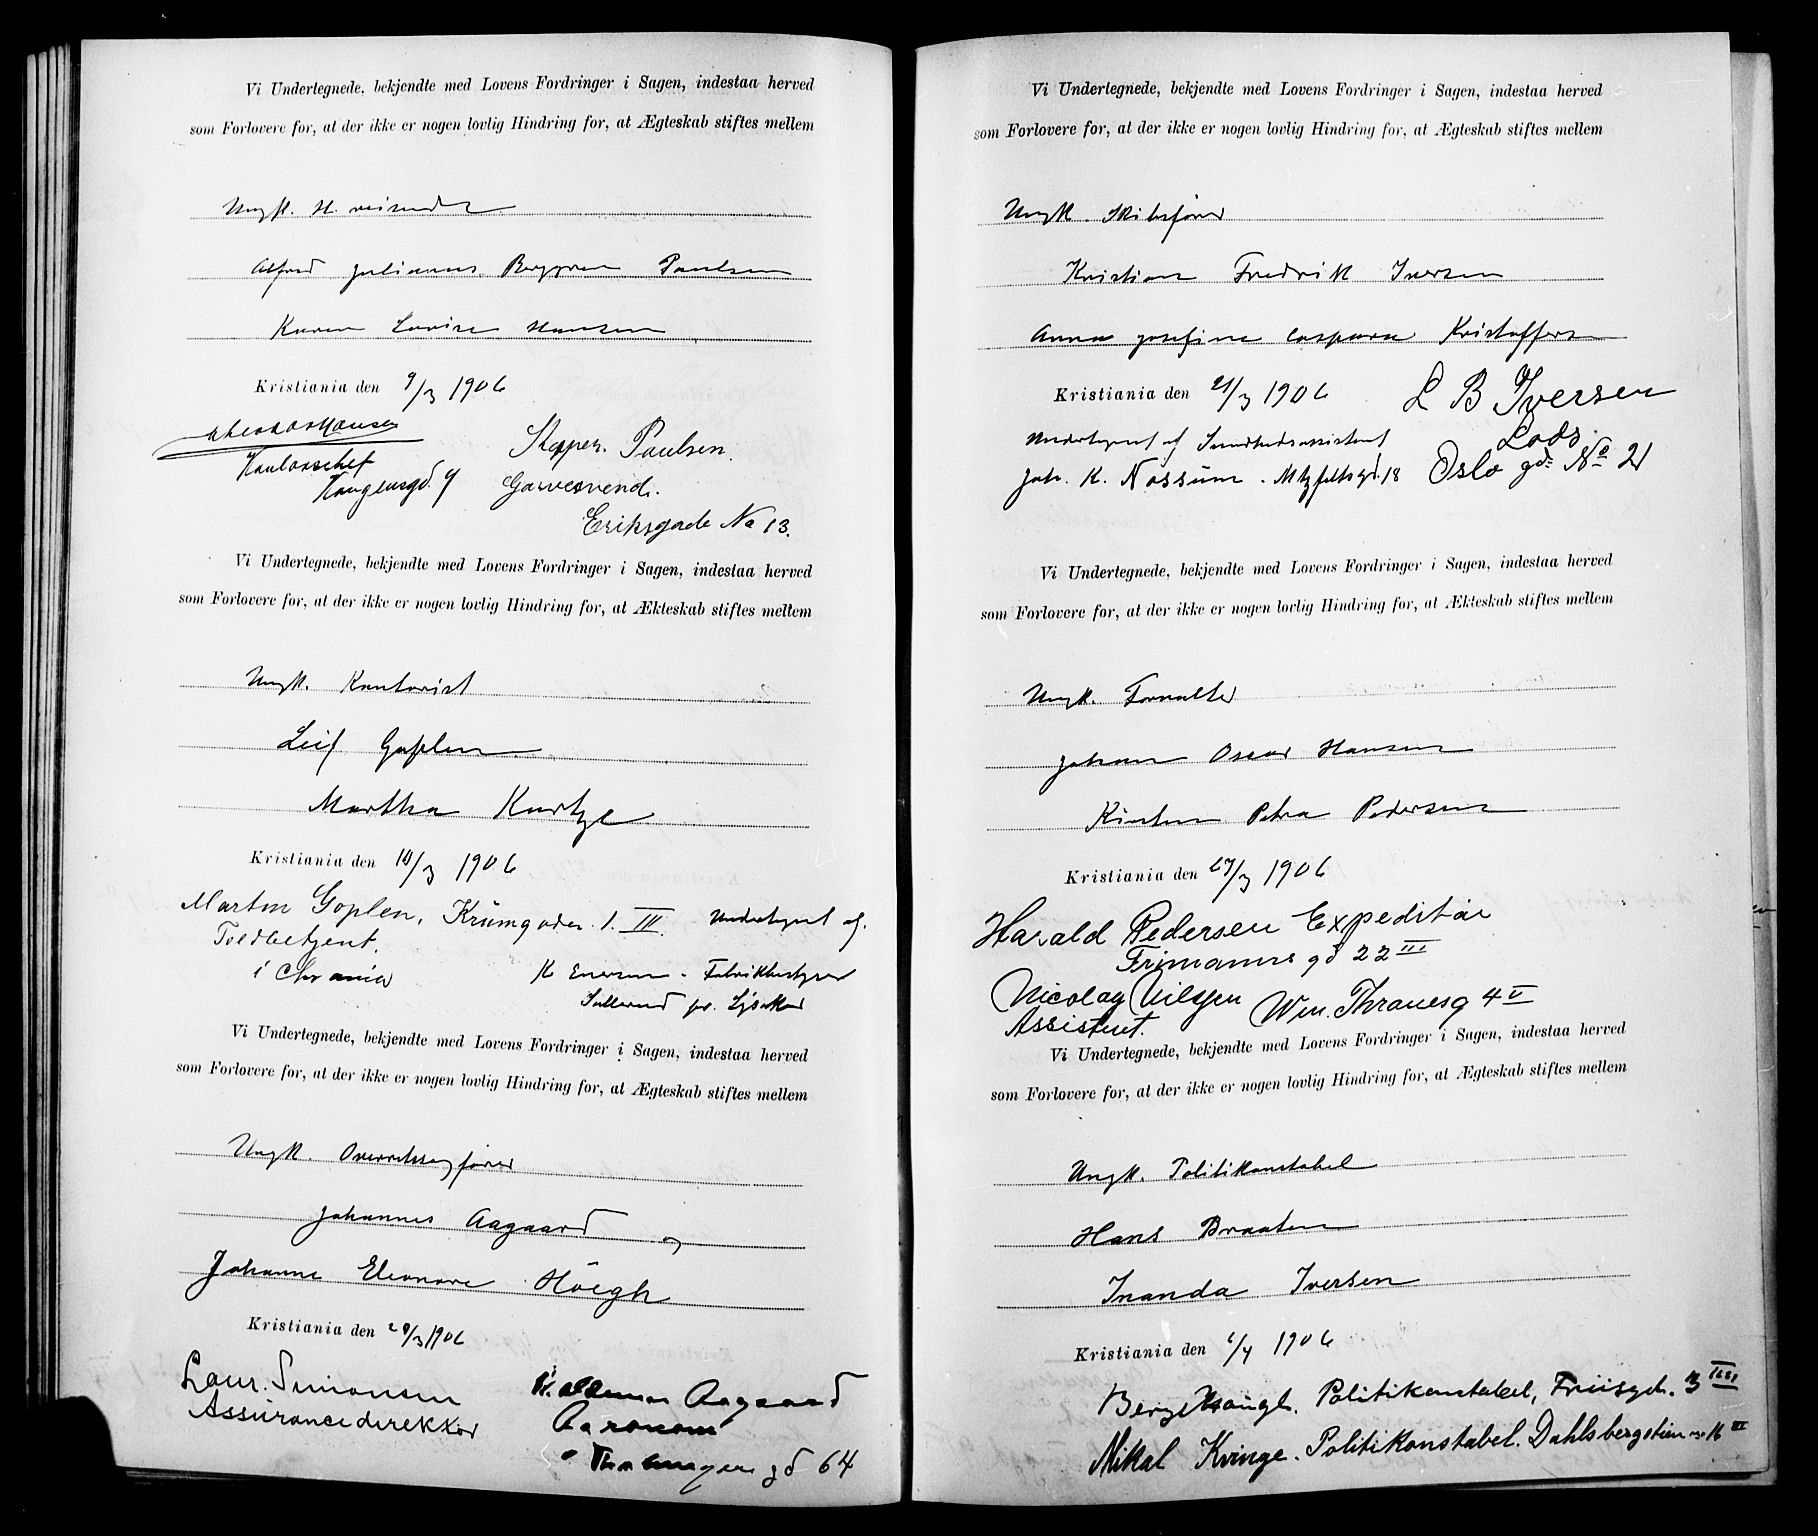 Vi Undertegnede, bekjendte med Lovens Fordringer i Sagen, indestaa herved
som Forlovere for, at der ikke er nogen lovlig Hindring for, at Ægteskab stiftes mellem
Ungk. H. reisende
Alfred Julianus Berggren Paulsen
Karen Lovise Hansen
Kristiania den 9/3 1906
Kongensgd. 9
Paulsen.
Garversvend.
Eriksgade No 13.
Vi Undertegnede, bekjendte med Lovens Fordringer i Sagen, indestaa herved
som Forlovere for, at der ikke er nogen lovlig Hindring for, at Ækteskab stiftes mellem
Ungk. Kontorist
Leif Goplen
Martha Kurtze
Kristiania den 10/3 1906
Martin Goplen, Krumgaden 1. III. Undertegnet af.
Toldbetjent.
i Chrania
K Enersen - Fabrikbestyrer
Sollerud pr. Lysaker
Vi Undertegnede, bekjendte med Lovens Fordringer i Sagen, indestaa herved
som Forlovere for, at der ikke er nogen lovlig Hindring for, at Ægteskab stiftes mellem
Ungk. Overretssagfører
Johannes Aagaard og
Johanne Eleonore Höegh
Kristiania den 20/3 1906
Laur. Simonsen
Assurancedirektør
Aagaard
gd 64
Vi Undertegnede, bekjendte med Lovens Fordringer i Sagen, indestaa herved
som Forlovere for, at der ikke er nogen lovlig Hindring for, at Ægteskab stiftes mellem
Ungk. Skibsfører
Kristian Fredrik Iversen
Anna Josefine Caspara Kristoffersen
Kristiania den 21/3 1906
L B Iversen
Lods
Oslo gd. No 21
Undertegnet af Sundhedsassistent
Joh. K. Nossum. Motzfeldtsgd. 18
Vi Undertegnede, bekjendte med Lovens Fordringer i Sagen, indestaa herved
som Forlovere for, at der ikke er nogen lovlig Hindring for, at Ækteskab stiftes mellem
Ungk. Forvalter
Johan Oscar Hansen
Kirsten Petra Pedersen
Kristiania den 27/3 1906
Harald Pedersen Expeditør
Frimanns gd 22 III
Nicolay Nilssen Wm. Thranesg 4 V
Assistent.
Vi Undertegnede, bekjendte med Lovens Fordringer i Sagen, indestaa herved
som Forlovere for, at der ikke er nogen lovlig Hindring for, at Ægteskab stiftes mellem
Ungk. Politikonstabel
Hans Braaten
Inanda Iversen
Kristiania den 6/4 1906
Politikonstabel, Friisgd. 3 III
Mikal Kvinge. Politikonstabel. Dahlsbergstien no 16 III